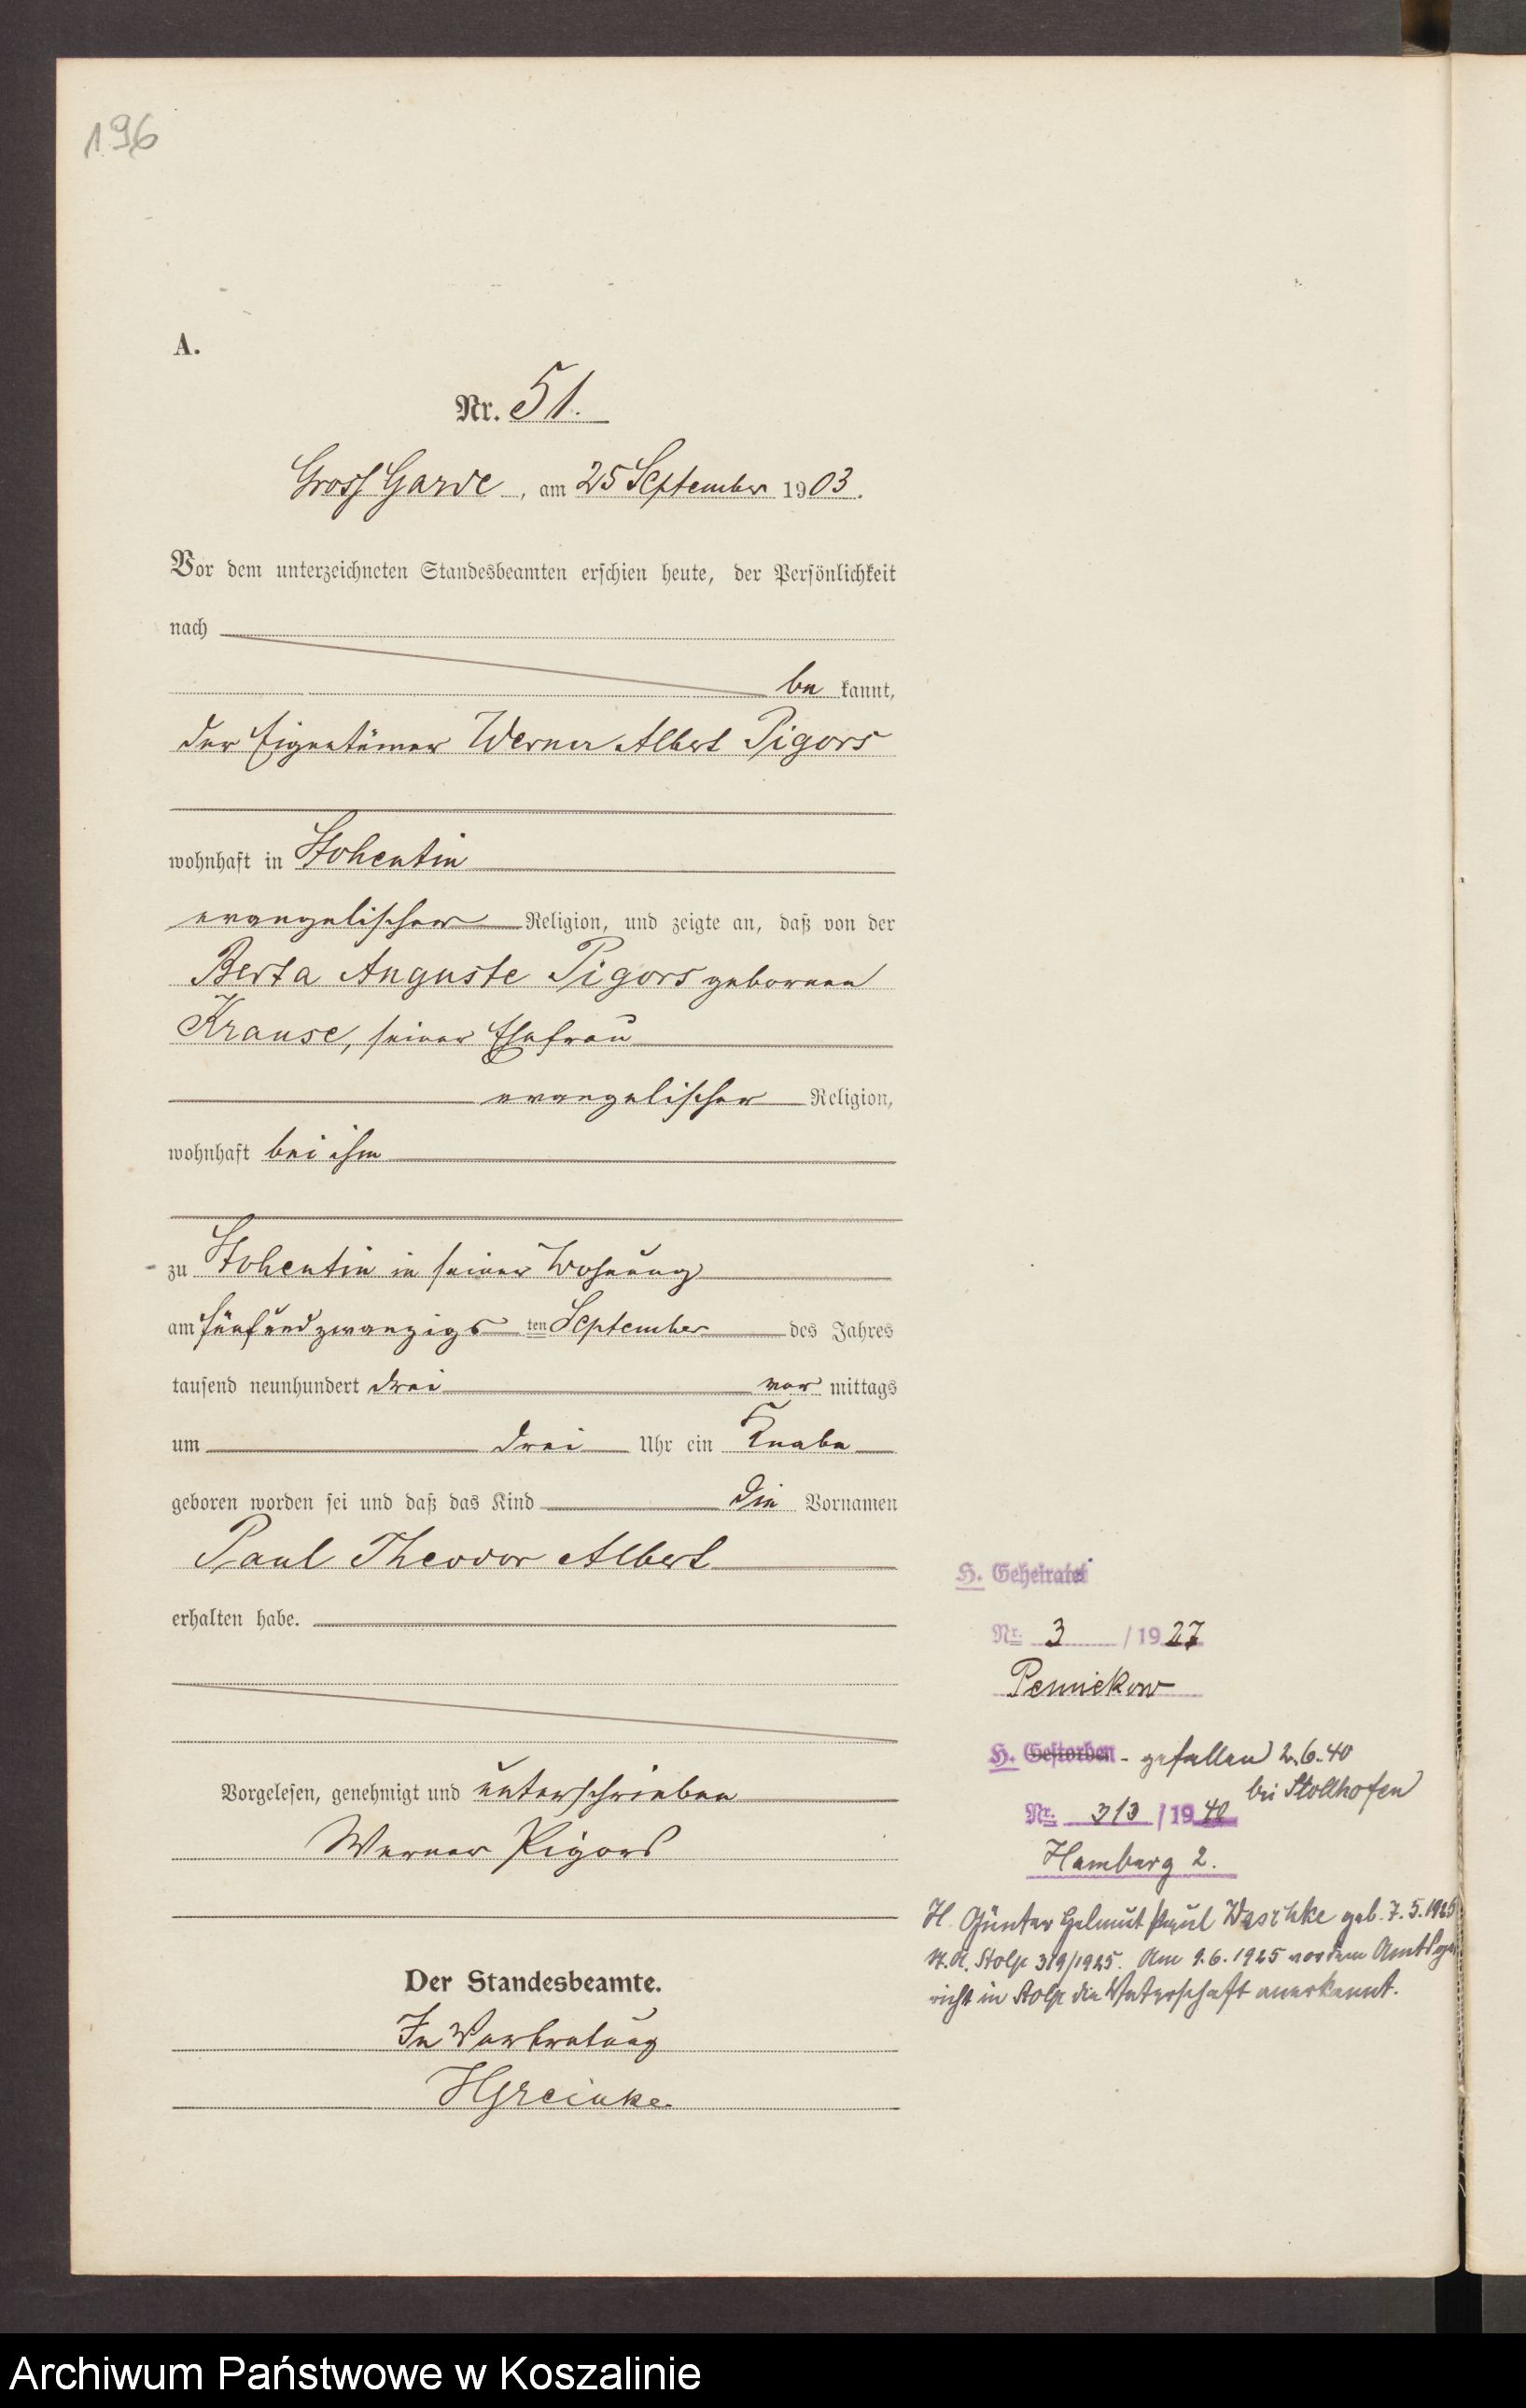 196
A.
Nr. 51.
Gross Garde, am 25 September 1903.
Vor dem unterzeichneten Standesbeamten erschien heute, der Persönlichkeit
nach
be kannt,
der Eigentümer Werner Albert Pigors
wohnhaft in Stohentin
evangelischer Religion, und zeigte an, daß von der
Berta Auguste Pigors geborenen
Krause, seiner Ehefrau
evangelischer Religion,
wohnhaft bei ihm
zu Stohentin in seiner Wohnung
am fünfundzwanzigs ten September des Jahres
tausend neunhundert drei vor mittags
um drei Uhr ein Knabe
geboren worden sei und daß das Kind die Vornamen
Paul Theodor Albert
erhalten habe.
Vorgelesen, genehmigt und unterschrieben
Werner Pigors
Der Standesbeamte.
In Vertretung
HGreinke.
H. Geheiratet
Nr. 3 / 1927
Pennekow
H. Gestorben - gefallen 2.6.40
bei Stollhofen
Nr. 313 / 1940
Hamburg 2.
H. Günter Helmut Paul Waschke geb. 7.5.1925
St.A. Stolp 319/1925. Am 9.6.1925 vor dem Amtsge
richt in Stolp die Vaterschaft anerkannt.
Archiwum Państwowe w Koszalinie